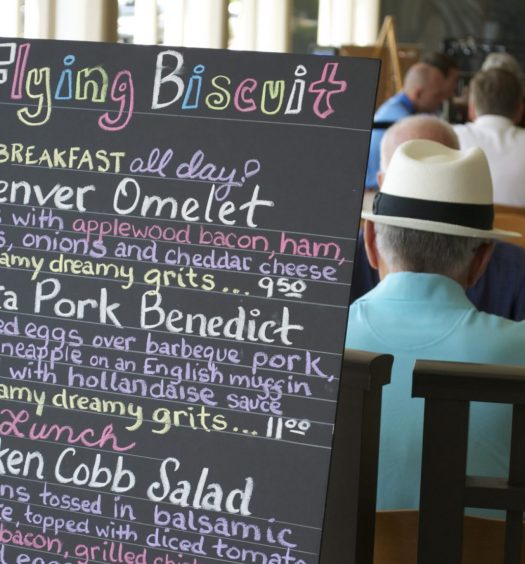 Flying Biscuit
BREAKFAST all day!
enver Omelet
with applewood bacon, ham,
s, onions and cheddar cheese
amy dreamy grits ... 9.50
a Pork Benedict
ed eggs over barbeque pork,
neapple on an English muffin
with hollandaise sauce
amy dreamy grits ... 11.00
Lunch
ken Cobb Salad
ns tossed in balsamic
e, topped with diced tomato
bacon, grilled chic